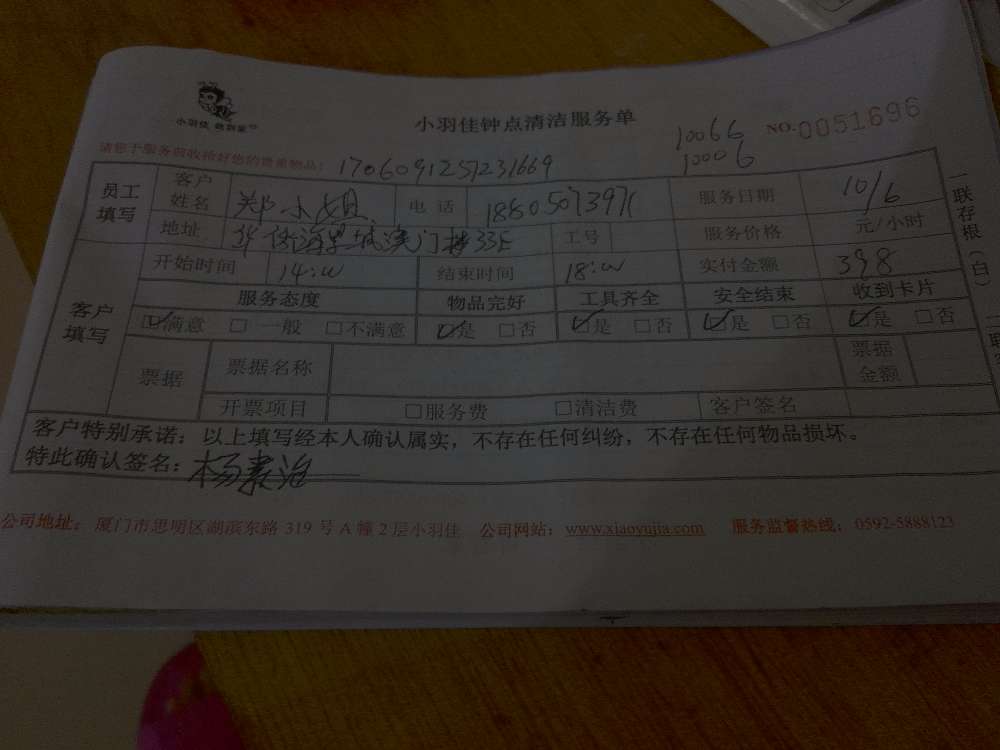 小羽佳 做到家
小羽佳钟点清洁服务单
10066
10006
NO. 0051696
请您于服务前收拾好您的贵重物品：
1706091257231669
员工填写 客户姓名 郑小姐 电话 服务日期 10/6
地址 33E 工号 服务价格 元/小时
客户填写 开始时间 14:00 结束时间 18:00 实付金额 398
服务态度 物品完好 工具齐全 安全结束 收到卡片
☑满意 □一般 □不满意 ☑是 □否 ☑是 □否 ☑是 □否 ☑是 □否
票据 票据名称 票据金额
开票项目 □服务费 □清洁费 客户签名
客户特别承诺：以上填写经本人确认属实，不存在任何纠纷，不存在任何物品损坏。
特此确认签名：杨素治
公司地址：厦门市思明区湖滨东路 319 号 A 幢 2 层小羽佳 公司网站：www.xiaoyujia.com 服务监督热线：0592-5888123
一联存根（白）